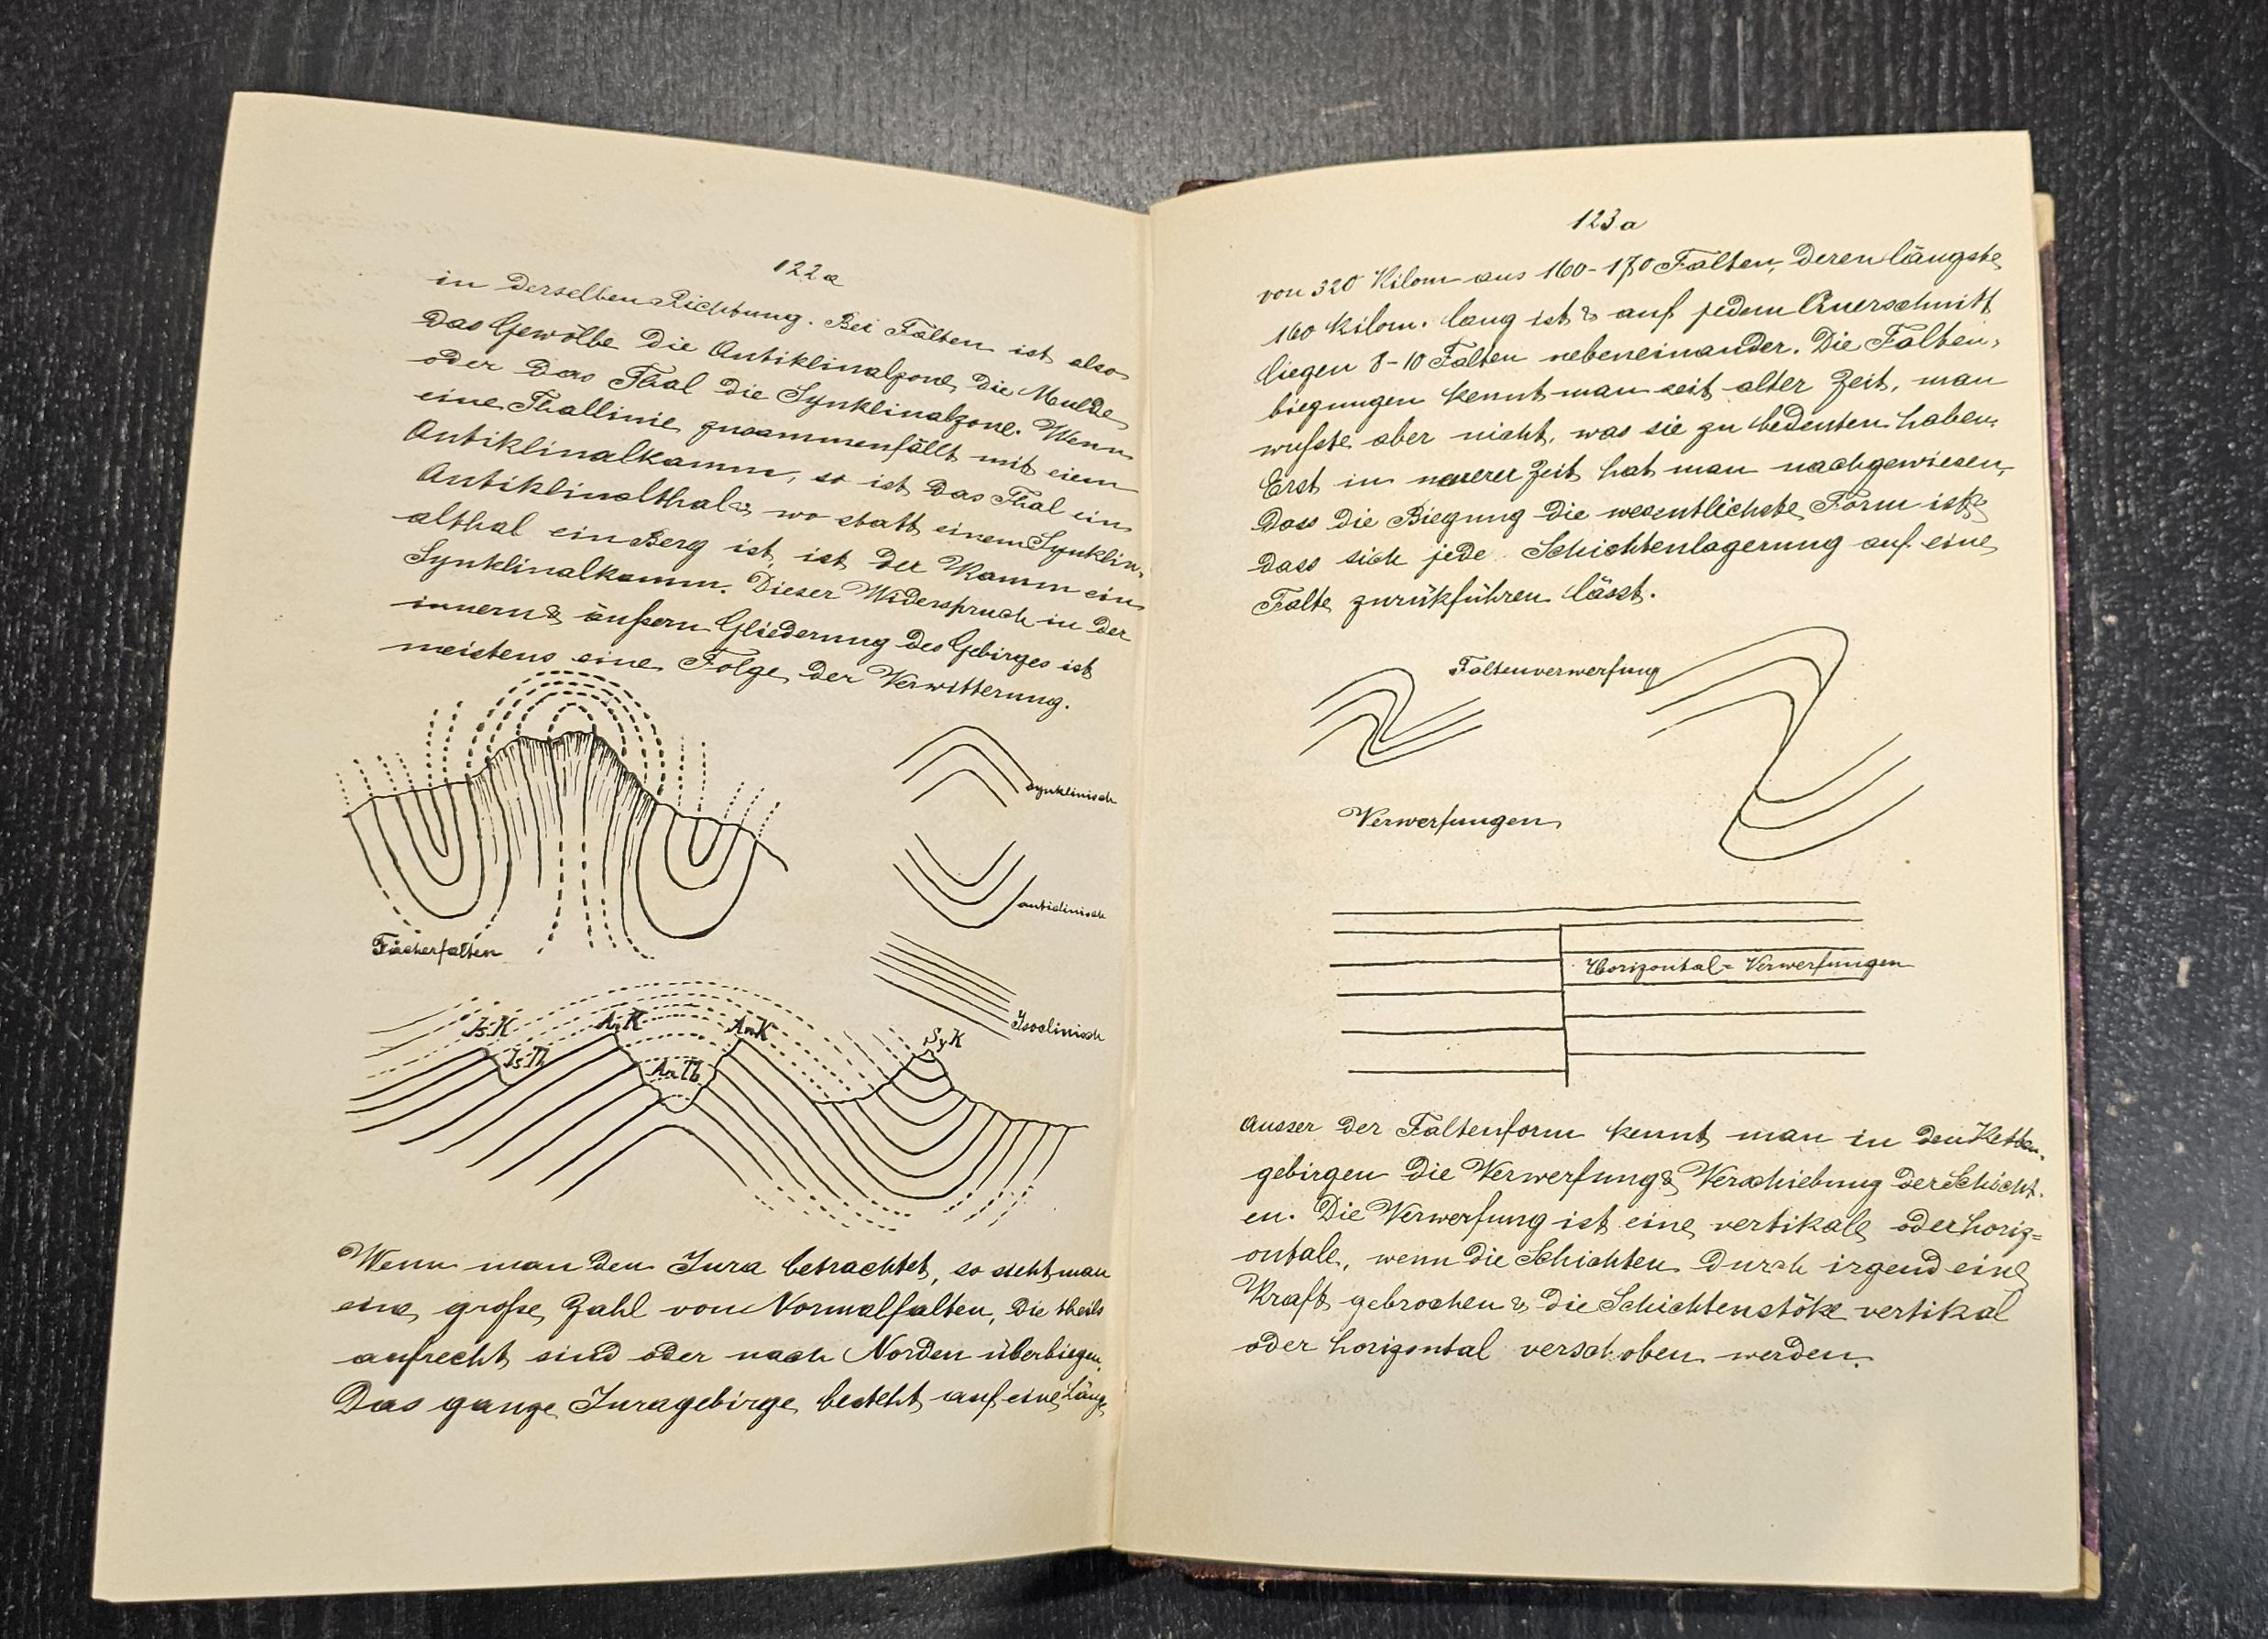 122a
in derselben Richtung. Bei Falten ist also
das Gewölbe die Antiklinalzone, die Mulde
oder das Thal die Synklinalzone. Wenn
eine Thallinie zusammenfällt mit eiem
Antiklinalkamm, so ist das Thal ein
Antiklinalthal & wo statt einem Synklin-
althal ein Berg ist, ist der Kamm ein
Synklinalkamm. Dieser Widerspruch in der
innern & äußern Gliederung des Gebirges ist
meistens eine Folge der Verwitterung.
synklinisch
anticlinisch
Fächerfalten
Isoclinisch
Is.K
An K
An K
Sy K
Is Th
An Th
Wenn man den Jura betrachtet, so sieht man
eine große Zahl von Normalfalten, die theils
aufrecht sind oder nach Norden überbiegen.
Das ganze Juragebirge besteht auf eine Länge
123a
von 320 Kilom aus 160-170 Falten, deren längste
160 Kilom. lang ist & auf jedem Querschnitt
liegen 8-10 Falten nebeneinander. Die Falten-
biegungen kennt man seit alter Zeit, man
wußte aber nicht, was sie zu bedeuten haben.
Erst in neuerer Zeit hat man nachgewiesen,
dass die Biegung die wesentlichste Form ist &
dass sich jede Schichtenlagerung auf eine
Falte zurükführen lässt.
Faltenverwerfung
Verwerfungen
Horizontal-Verwerfungen
Ausser der Faltenform kennt man in den Ketten-
gebirgen die Verwerfung & Verschiebung der Schicht-
en. Die Verwerfung ist eine vertikale oder horiz=
ontale, wenn die Schichten durch irgend eine
Kraft gebrochen & die Schichtenstöke vertikal
oder horizontal verschoben werden.